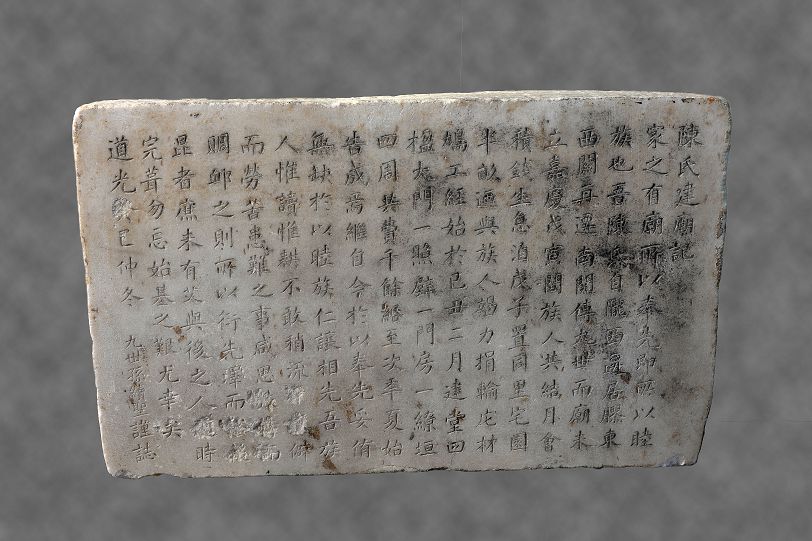 陳氏建廟記
家之有廟所以奉先即所以睦
族也吾陳氏自隴西遷居膠東
西關再遷南關傳九世而廟未
立嘉慶戊寅闔族人共結月會
積錢生息洎戊子置同里宅園
半畝遍與族人竭力捐輸庀材
鳩工經始於己丑二月建堂四
楹大門一照壁一門房一繚垣
四周共費千餘緡至次年夏始
告成焉繼自今於以奉先妥侑
無缺於以睦族仁讓相先吾族
人惟讀惟耕不敢稍涉
而勞苦患難之事咸思
賙卹之則所以衍先澤而
昆者庶未有艾與後之人時
完葺勿忘始基之難尤幸矣
道光癸巳仲冬 九世孫謹誌